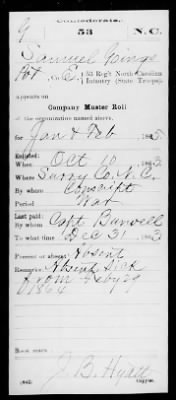 Confederate.
G 53 N.C.
Samuel Gings
Pvt, Co. E, 53 Reg't North Carolina
Infantry (State Troops).
Appears on
Company Muster Roll
of the organization named above,
for Jan & Feb 1865
Enlisted:
When Oct 10 1863
Where Surry Co. N.C.
By whom Conscript
Period War
Last paid:
By whom Capt Burwell
To what time Dec 31 1863
Present or absent Absent
Remarks: Absent Sick
from Feby 29
1864
Book mark:
J. B. Hyatt
(642) Copyist.